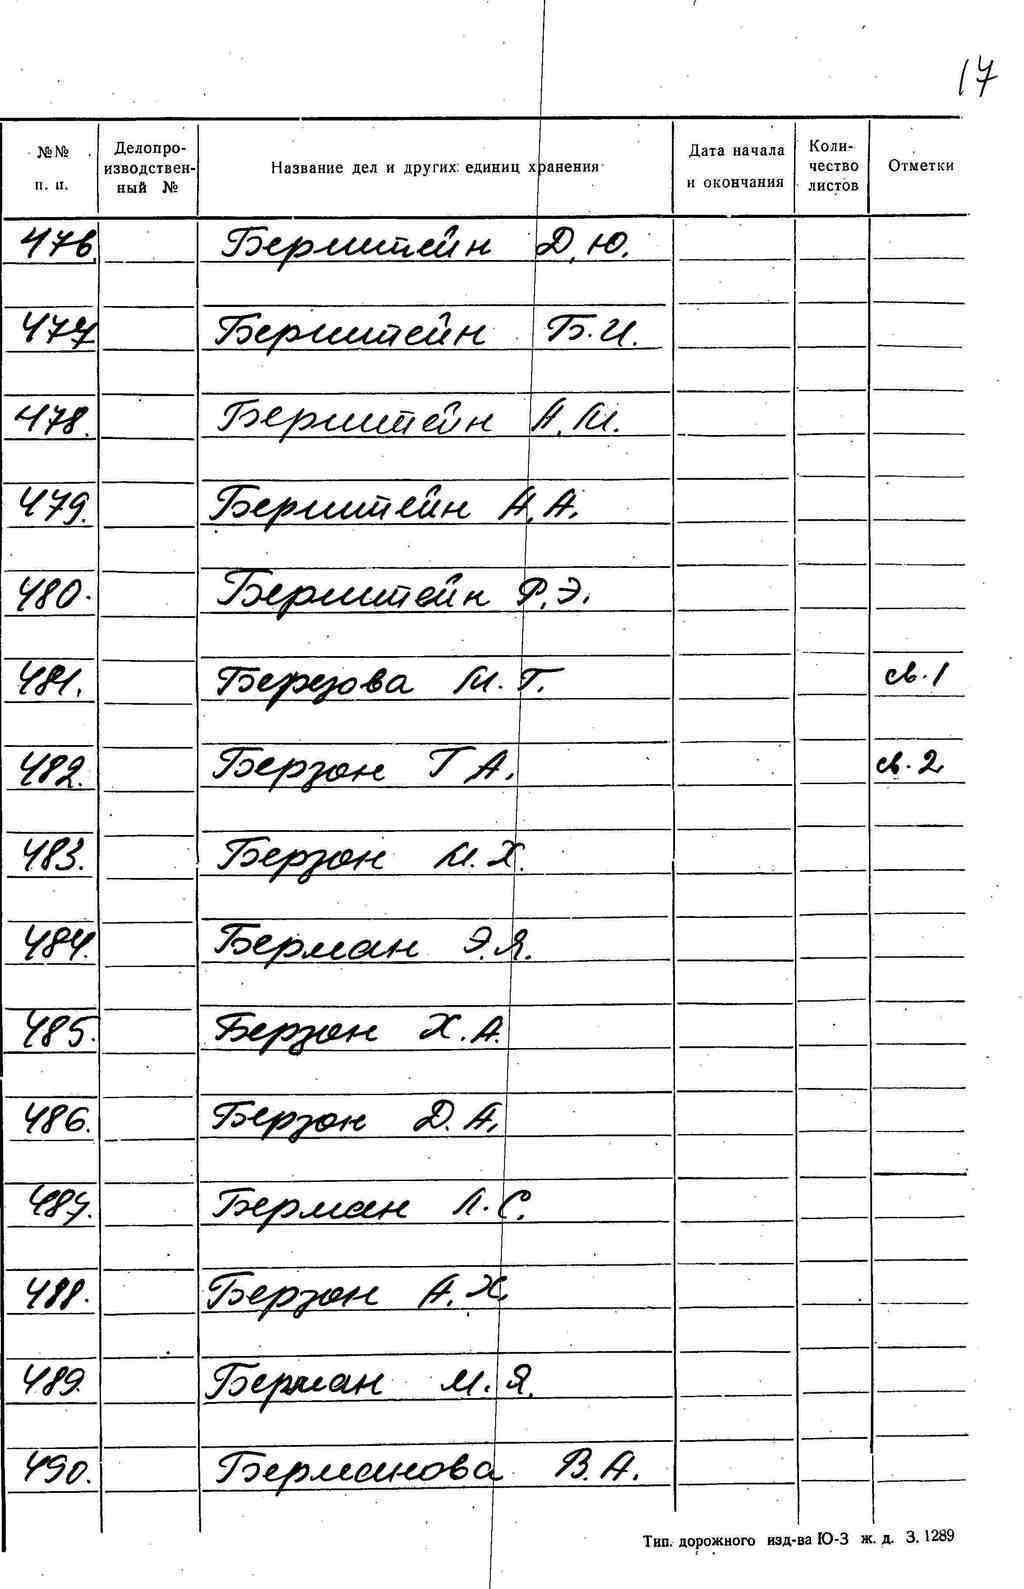 17
№№ п. п. Делопроизводственный № Название дел и других единиц хранения Дата начала и окончания Количество листов Отметки
476. Бернштейн Д.Ю.
477 Бернштейн Б.И.
478. Бернштейн А.М.
479. Бернштейн А.А.
480. Бернштейн Р.Э.
481. Березова М.Г. св.1
482. Берзон Г А. св.2
483. Берзон М.Х.
484. Берман Э.Я.
485. Берзон Х.А.
486. Берзон Д.А.
487. Берман Л.С.
488. Берзон А.Х.
489. Берман М.Я.
490. Берманова В.А.
Тип. дорожного изд-ва Ю-З ж. д. З. 1289